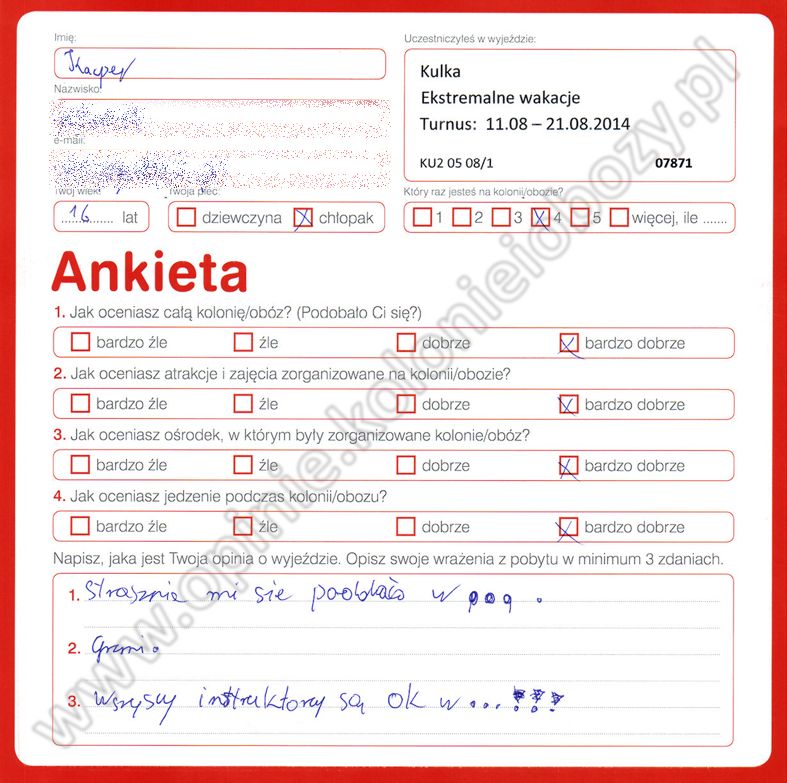 Imię:
Kacper
Uczestniczyłeś w wyjeździe:
Kulka
Ekstremalne wakacje
Turnus: 11.08 – 21.08.2014
KU2 05 08/1 07871
Nazwisko:
e-mail:
Twój wiek:
16 lat
Twoja płeć:
dziewczyna chłopak
Który raz jesteś na kolonii/obozie?
1 2 3 4 5 więcej, ile .......
Ankieta
1. Jak oceniasz całą kolonię/obóz? (Podobało Ci się?)
bardzo źle źle dobrze bardzo dobrze
2. Jak oceniasz atrakcje i zajęcia zorganizowane na kolonii/obozie?
bardzo źle źle dobrze bardzo dobrze
3. Jak oceniasz ośrodek, w którym były zorganizowane kolonie/obóz?
bardzo źle źle dobrze bardzo dobrze
4. Jak oceniasz jedzenie podczas kolonii/obozu?
bardzo źle źle dobrze bardzo dobrze
Napisz, jaka jest Twoja opinia o wyjeździe. Opisz swoje wrażenia z pobytu w minimum 3 zdaniach.
1. Strasznie mi sie podobało w
2.
3. wszyscy instruktorzy są OK w...!!!
www.opinie.kolonieiobozy.pl